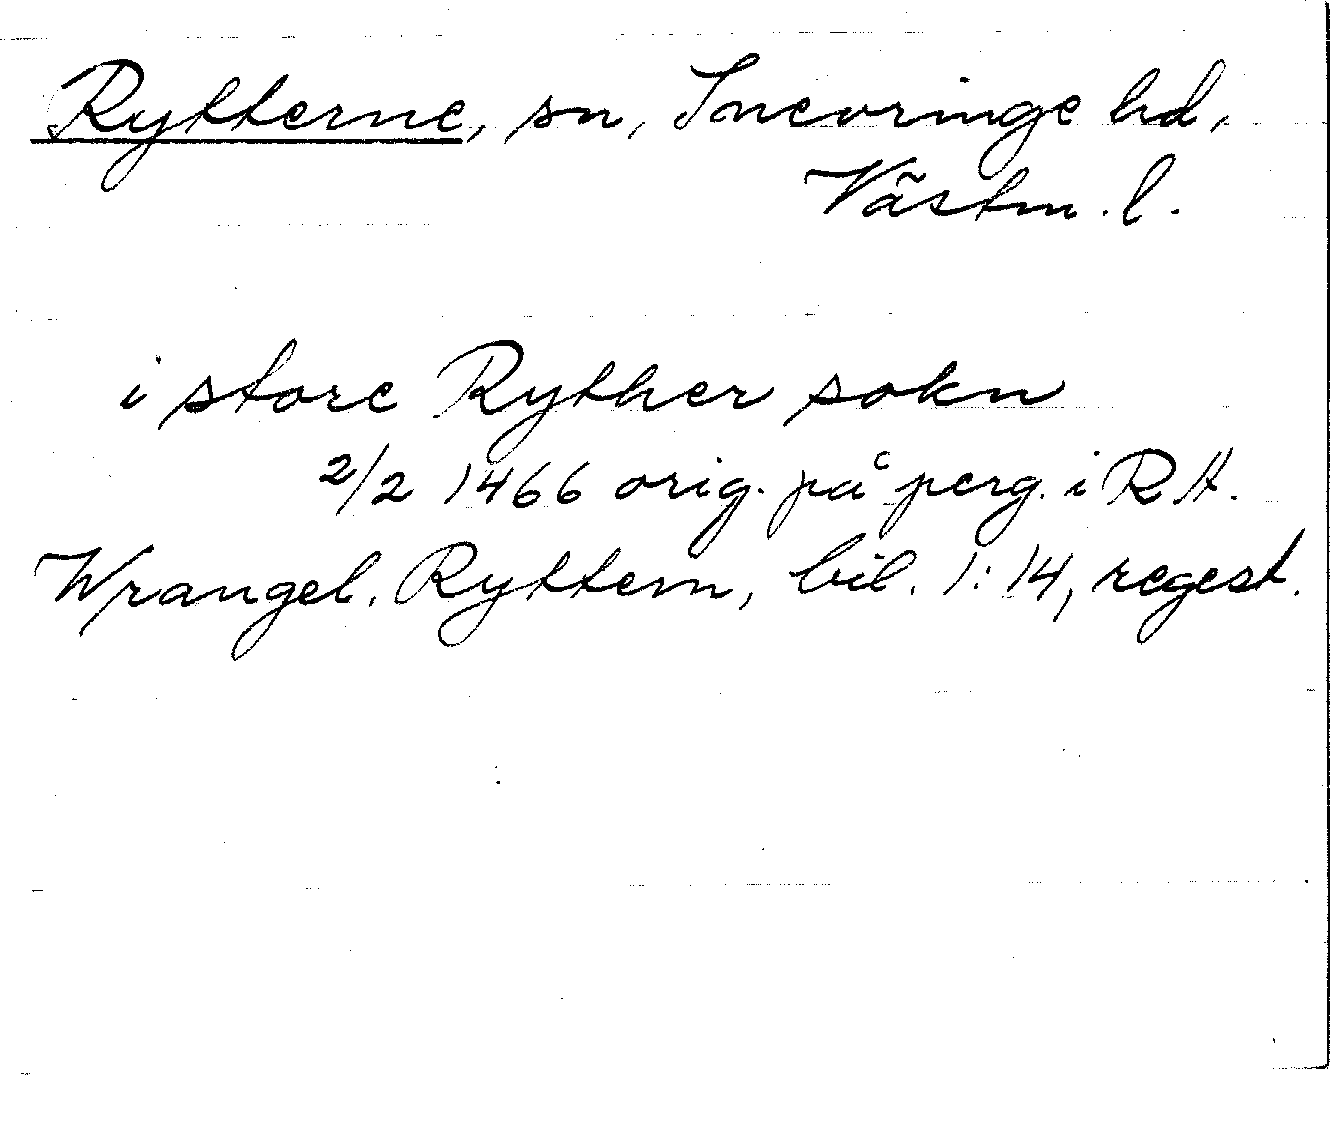 Rytterne, sn, Snevringe hd,
Västm. l.
i store Ryther sokn
2/2 1466 orig. på perg. i RA.
Wrangel. Ryttern, bil. 1:14, regest.